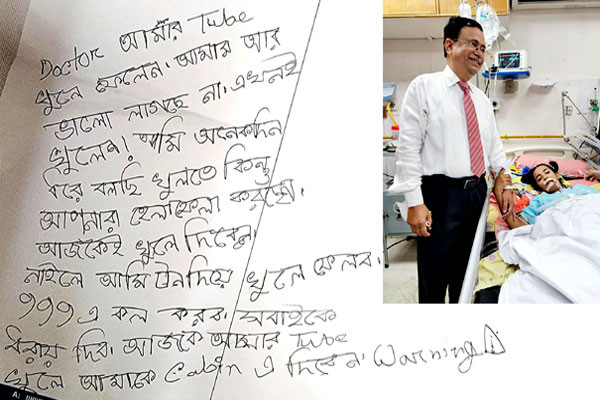 Doctor আমার Tube
খুলে ফেলেন। আমার আর
ভালো লাগছে না। এখনই
খুলেন। আমি অনেকদিন
ধরে বলছি খুলতে কিন্তু
আপনারা হেলাফেলা করছেন।
আজকেই খুলে দিবেন।
নাইলে আমি টান দিয়ে খুলে ফেলব।
999 এ কল করব। সবাইকে
ধরায় দিব। আজকে আমার Tube
খুলে আমাকে Cabin এ দিবেন। Warning ⚠